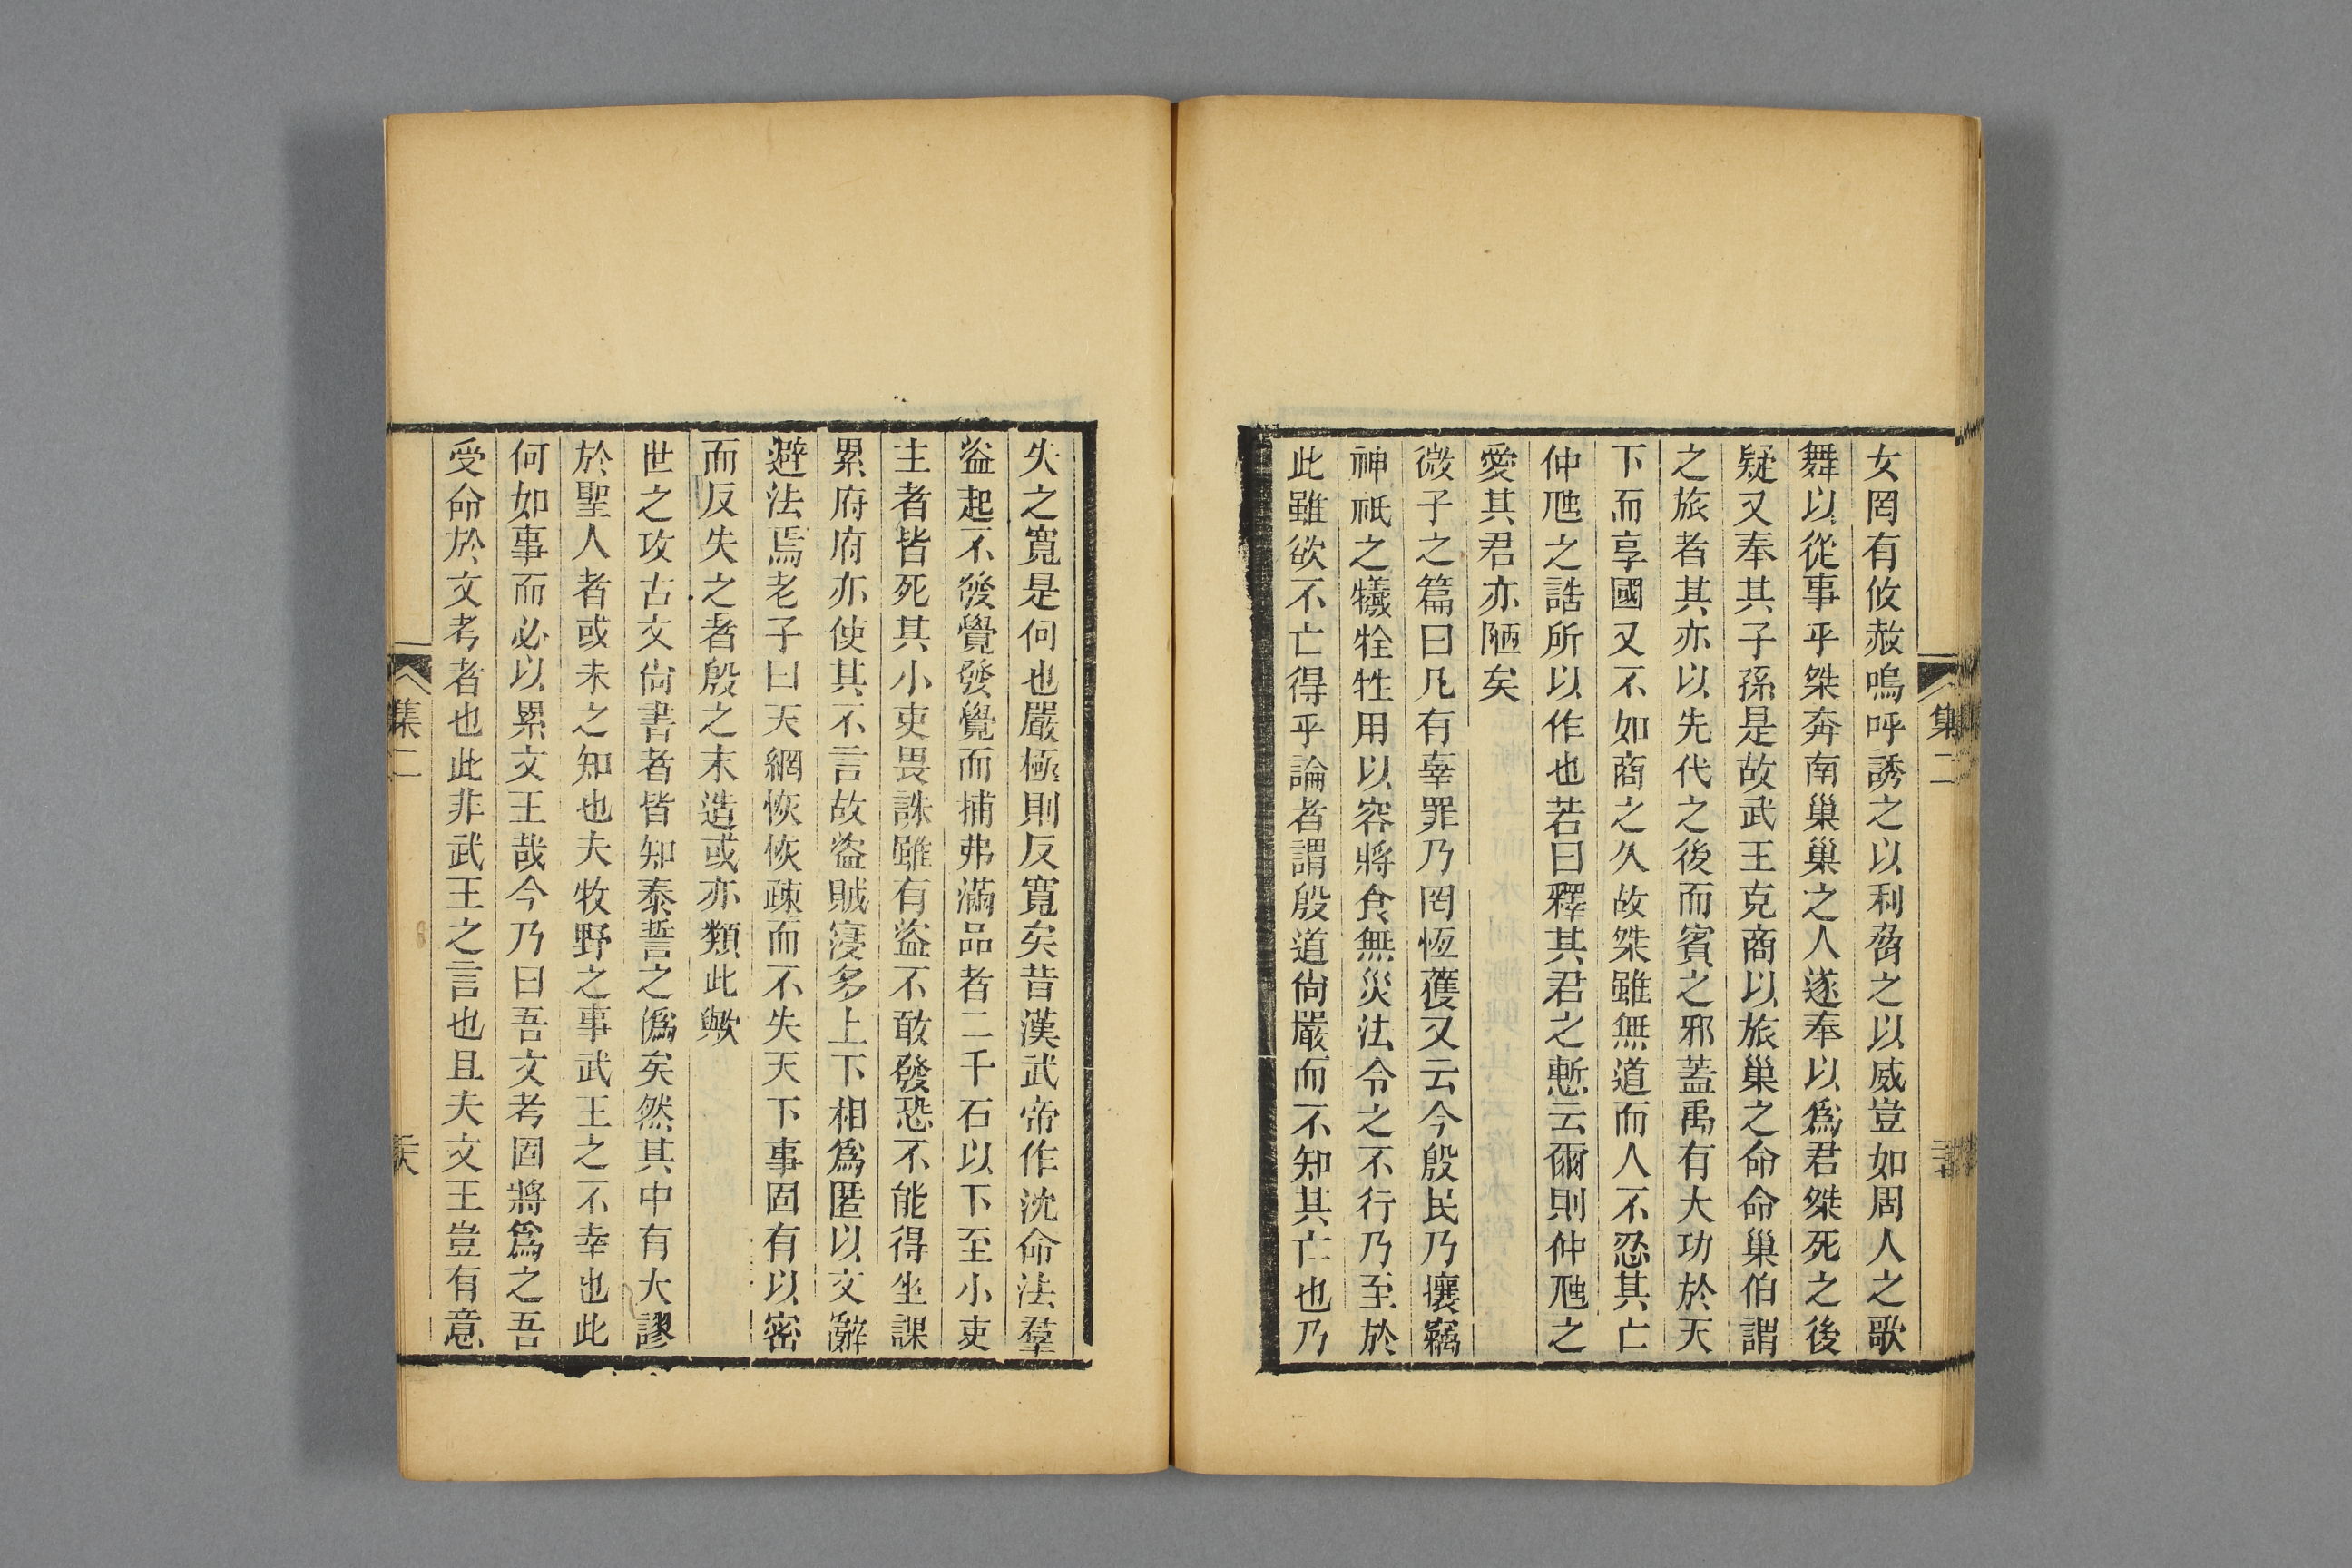 女罔有攸赦嗚呼誘之以利脅之以威豈如周人之歌
舞以從事乎桀奔南巢巢之人遂奉以爲君桀死之後
疑又奉其子孫是故武王克商以旅巢之命命巢伯謂
之旅者其亦以先代之後而賓之邪蓋禹有大功於天
下而享國又不如商之久故桀雖無道而人不忍其亡
仲虺之誥所以作也若曰釋其君之慙云爾則仲虺之
愛其君亦陋矣
微子之篇曰凡有辜罪乃罔恆獲又云今殷民乃攘竊
神祇之犧牷牲用以容將食無災法令之不行乃至於
此雖欲不亡得乎論者謂殷道尙嚴而不知其亡也乃
失之寬是何也嚴極則反寬矣昔漢武帝作沈命法羣
盜起不發覺發覺而捕弗滿品者二千石以下至小吏
主者皆死其小吏畏誅雖有盜不敢發恐不能得坐課
累府府亦使其不言故盜賊寖多上下相爲匿以文辭
避法焉老子曰天網恢恢疎而不失天下事固有以密
而反失之者殷之末造或亦類此歟
世之攻古文尙書者皆知泰誓之僞矣然其中有大謬
於聖人者或未之知也夫牧野之事武王之不幸也此
何如事而必以累文王哉今乃曰吾文考固將爲之吾
受命於文考者也此非武王之言也且夫文王豈有意
集二
集二